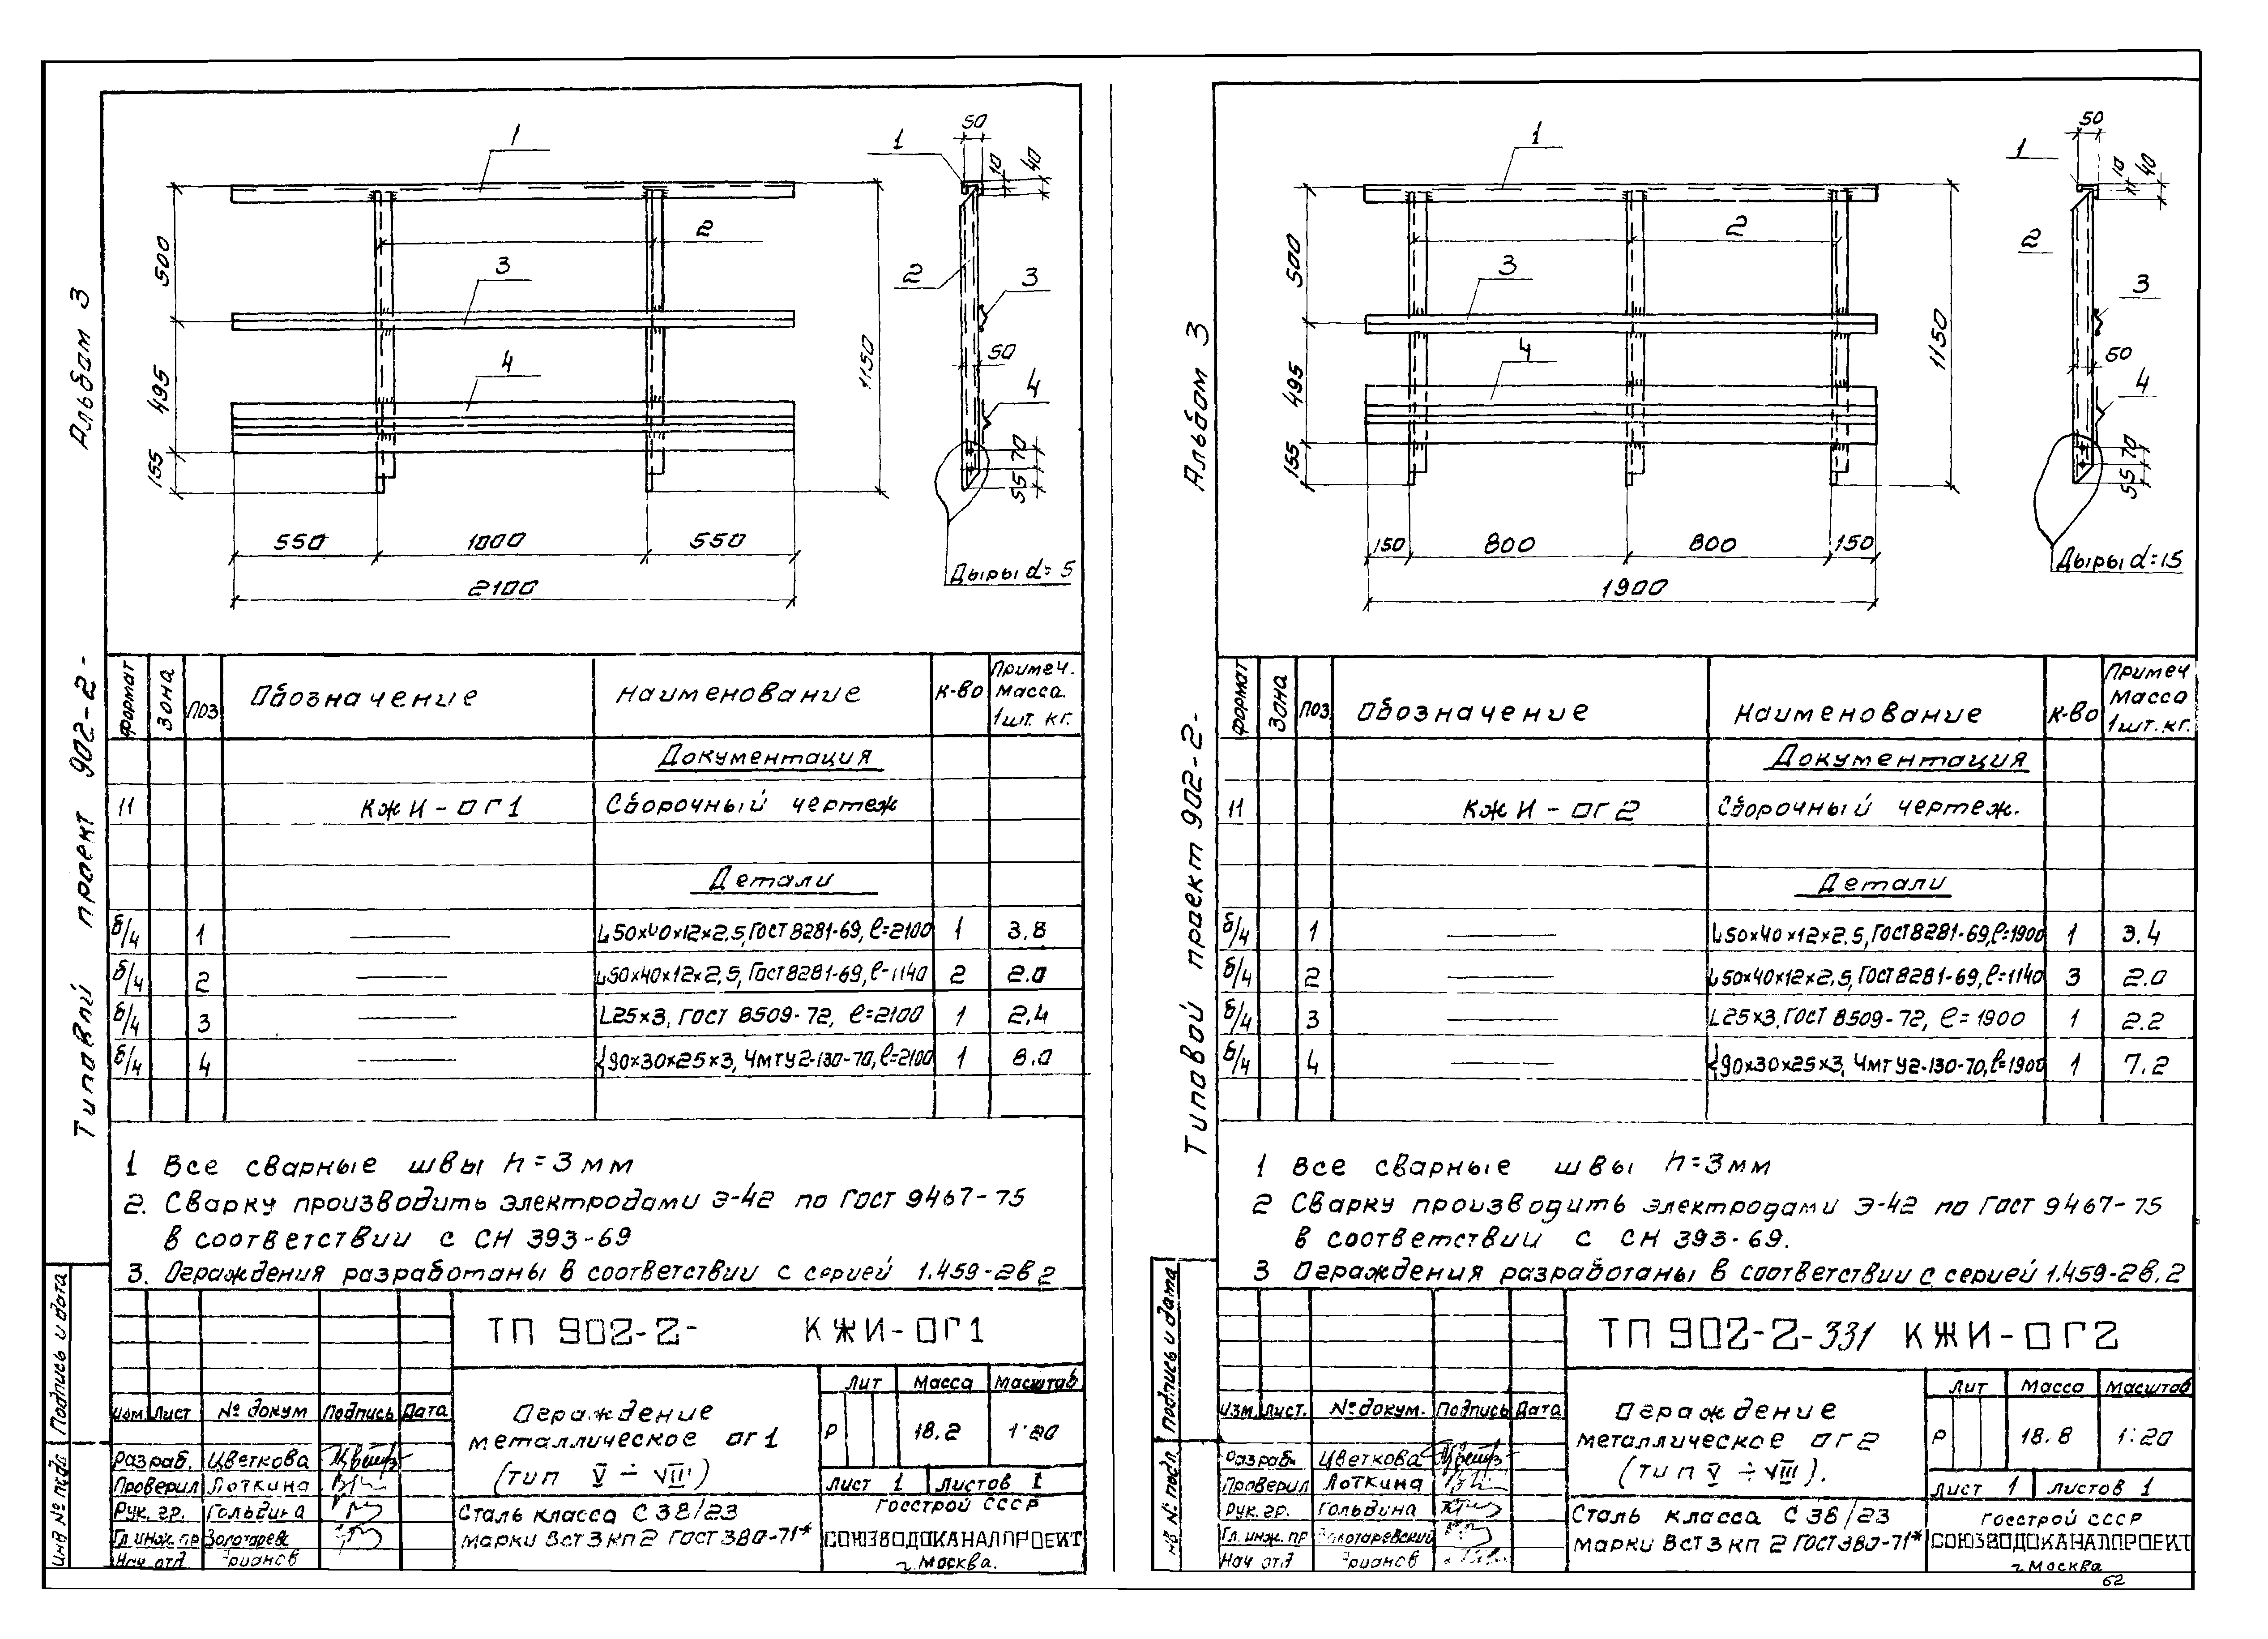 Альбом 3
Типовой проект 902-2-
1
2
3
4
500
495
155
550
1000
550
2100
1150
1
50
10
40
2
3
50
4
70
55
Дыры d= 5
Формат
Зона
Поз
Обозначение
Наименование
К-во
Примеч. Масса. 1шт. кг.
Документация
11 КЖИ-ОГ1 Сборочный чертеж
Детали
б/4 1 L50х40х12х2.5, ГОСТ 8281-69, ℓ=2100 1 3.8
б/4 2 L50х40х12х2,5, ГОСТ 8281-69, ℓ=1140 2 2.0
б/4 3 L25х3, ГОСТ 8509-72, ℓ=2100 1 2,4
б/4 4 90х30х25х3, ЧМТУ2-130-70, ℓ=2100 1 8.0
1 Все сварные швы h=3мм
2. Сварку производить электродами Э-42 по ГОСТ 9467-75
в соответствии с СН 393-69
3. Ограждения разработаны в соответствии с серией 1.459-2в2
ТП 902-2- КЖИ-ОГ1
Изм. Лист № докум Подпись Дата
Разраб. Цветкова
Проверил Лоткина
Рук. гр. Гольдина
Гл. инж. пр Золотаревс
Нач отд
Ограждение
металлическое ОГ1
(тип V ÷ VIII)
Сталь класса С 38/23
марки ВСт3кп2 ГОСТ 380-71*
Лит Масса Масштаб
Р 18.2 1:20
Лист 1 Листов 1
Госстрой СССР
СОЮЗВОДОКАНАЛПРОЕКТ
г. Москва.
Подпись и дата
Инв № подл
Альбом 3
Типовой проект 902-2-
1
2
3
4
500
495
155
150
800
800
150
1900
1150
1
50
10
40
2
3
50
4
70
55
Дыры d=15
Формат
Зона
Поз
Обозначение
Наименование
К-во
Примеч Масса 1шт. кг.
Документация
11 КЖИ-ОГ2 Сборочный чертеж.
Детали
б/4 1 L50х40х12х2.5, ГОСТ 8281-69, ℓ=1900 1 3.4
б/4 2 L50х40х12х2.5, ГОСТ 8281-69, ℓ=1140 3 2.0
б/4 3 L25х3, ГОСТ 8509-72, ℓ=1900 1 2.2
б/4 4 90х30х25х3, ЧМТУ2-130-70, ℓ=1900 1 7.2
1 Все сварные швы h=3мм
2 Сварку производить электродами Э-42 по ГОСТ 9467-75
в соответствии с СН 393-69.
3 Ограждения разработаны в соответствии с серией 1.459-2в.2
ТП 902-2-331 КЖИ-ОГ2
Изм. Лист. № докум. Подпись Дата
Разраб. Цветкова
Проверил Лоткина
Рук. гр. Гольдина
Гл. инж. пр Золотаревский
Нач отд
Ограждение
металлическое ОГ2
(тип V ÷ VIII).
Сталь класса С 38/23
марки ВСт3кп2 ГОСТ 380-71*
Лит Масса Масштаб
Р 18.8 1:20
Лист 1 Листов 1
Госстрой СССР
СОЮЗВОДОКАНАЛПРОЕКТ
г. Москва
62
Подпись и дата